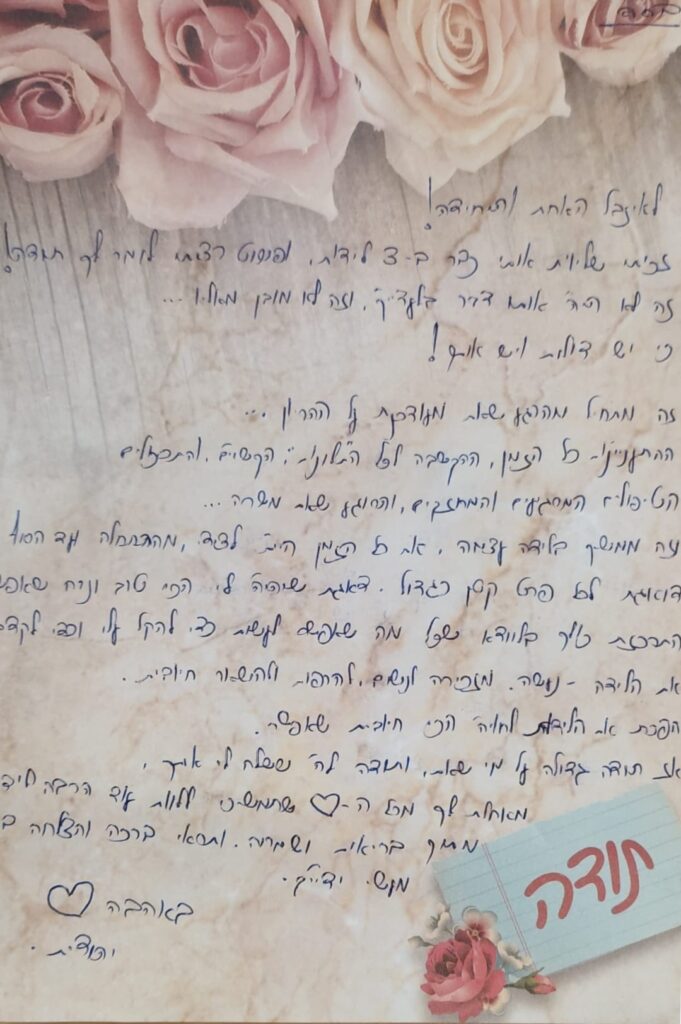 בס"ד
לאיזבל האחת והיחידה!
זכיתי שליוית אותי כבר ב-3 לידות, ופשוט רציתי לומר לך תודה!
זה לא היה אותו דבר בלעדייך, וזה לא מובן מאליו...
כי יש דולות ויש אותך!
זה מתחיל מהרגע שאת מעודכנת על ההריון ...
ההתעניינות כל הזמן, ההקשבה לכל ה"תלונות", הקשיים, והתסכולים
הטיפולים המרגיעים והמחזקים, והרוגע שאת משרה...
וזה ממשיך בלידה עצמה, את כל הזמן היית לצידי, מההתחלה ועד הסוף
דואגת לכל פרט קטן כגדול. דאגת שיהיה לי הכי טוב ונוח שאפשר
התרכזת כולך בלוודא שכל מה שאפשר לעשות כדי להקל עלי וכדי לקדם
את הלידה - נעשה. מזכירה לנשום, להרפות ולהשאר חיובית.
הפכת את הלידות לחויה הכי חיובית שאפשר.
אז תודה גדולה על מי שאת, ותודה לה' ששלח לי אותך,
מאחלת לך מכל ה-♡ שתמשיכי ללוות עוד הרבה
מתוך בריאות ושמחה. ותראי ברכה והצלחה
מעשי ידייך.
באהבה ♡
יהודית.
תודה